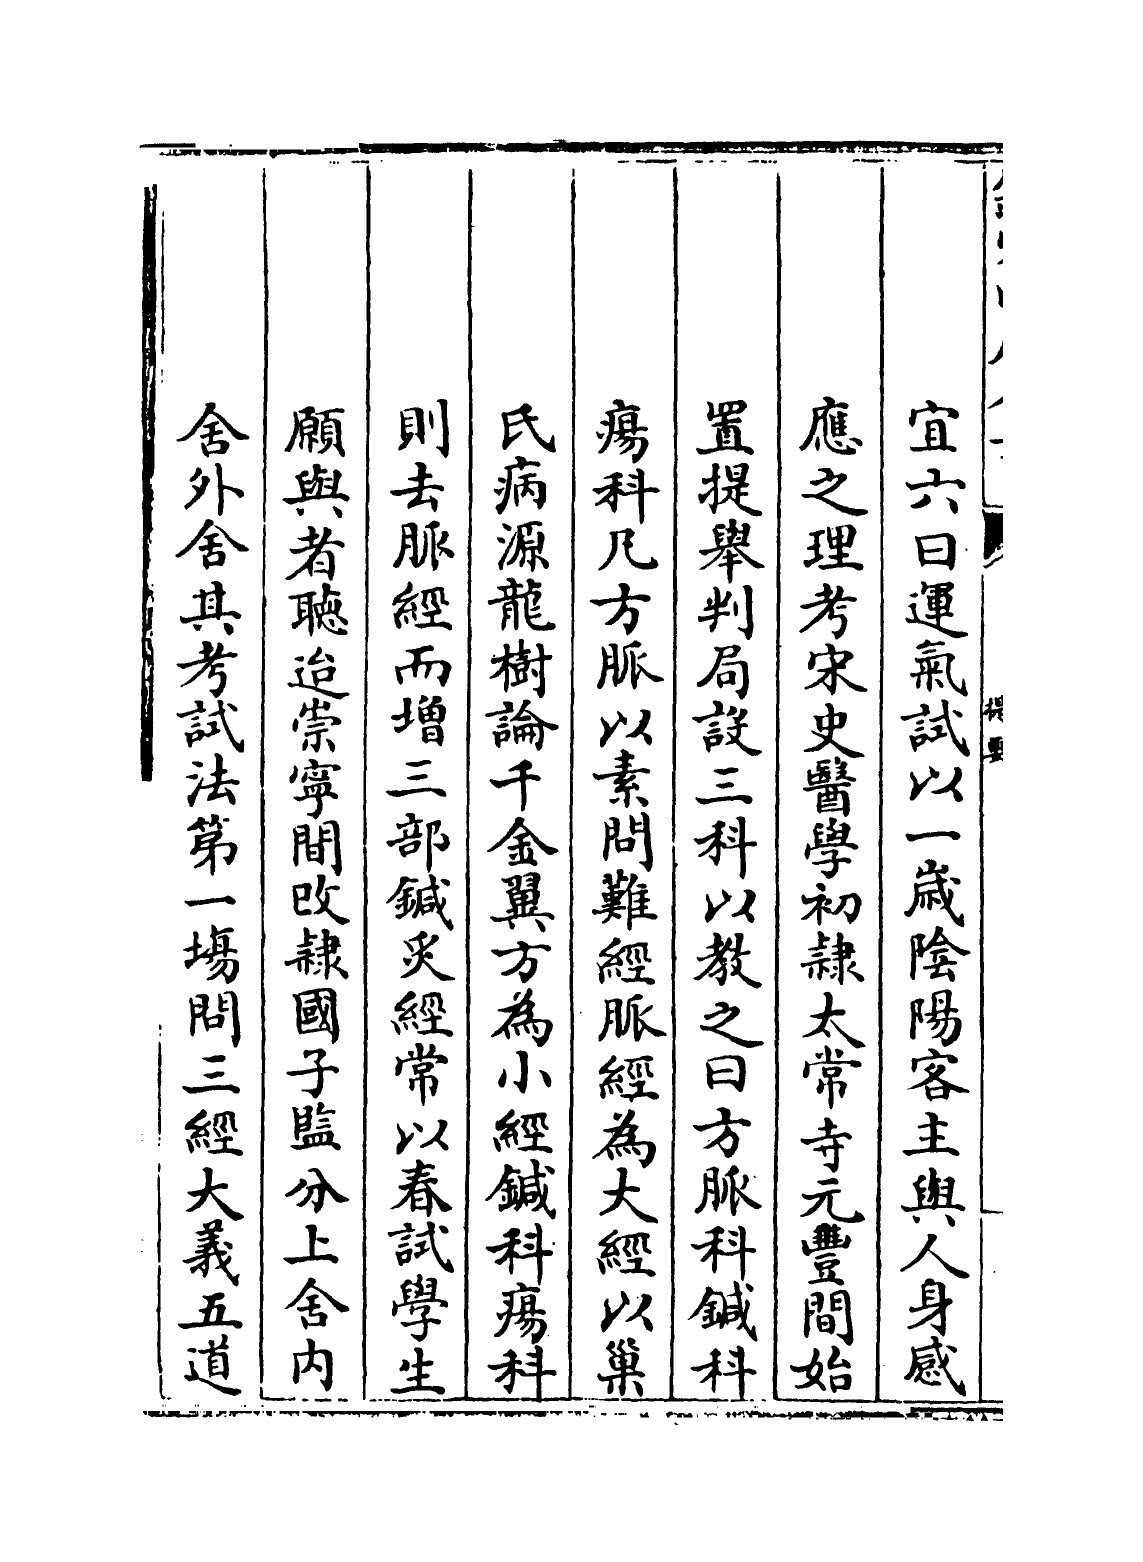 宜六曰運氣試以一歲陰陽客主與人身感
應之理考宋史醫學初隸太常寺元豐間始
置提舉判局設三科以教之曰方脈科鍼科
瘍科凡方脈以素問難經脈經為大經以巢
氏病源龍樹論千金翼方為小經鍼科瘍科
則去脈經而增三部鍼灸經常以春試學生
願與者聽迨崇寧間改隸國子監分上舍內
舍外舍其考試法第一場問三經大義五道
提要